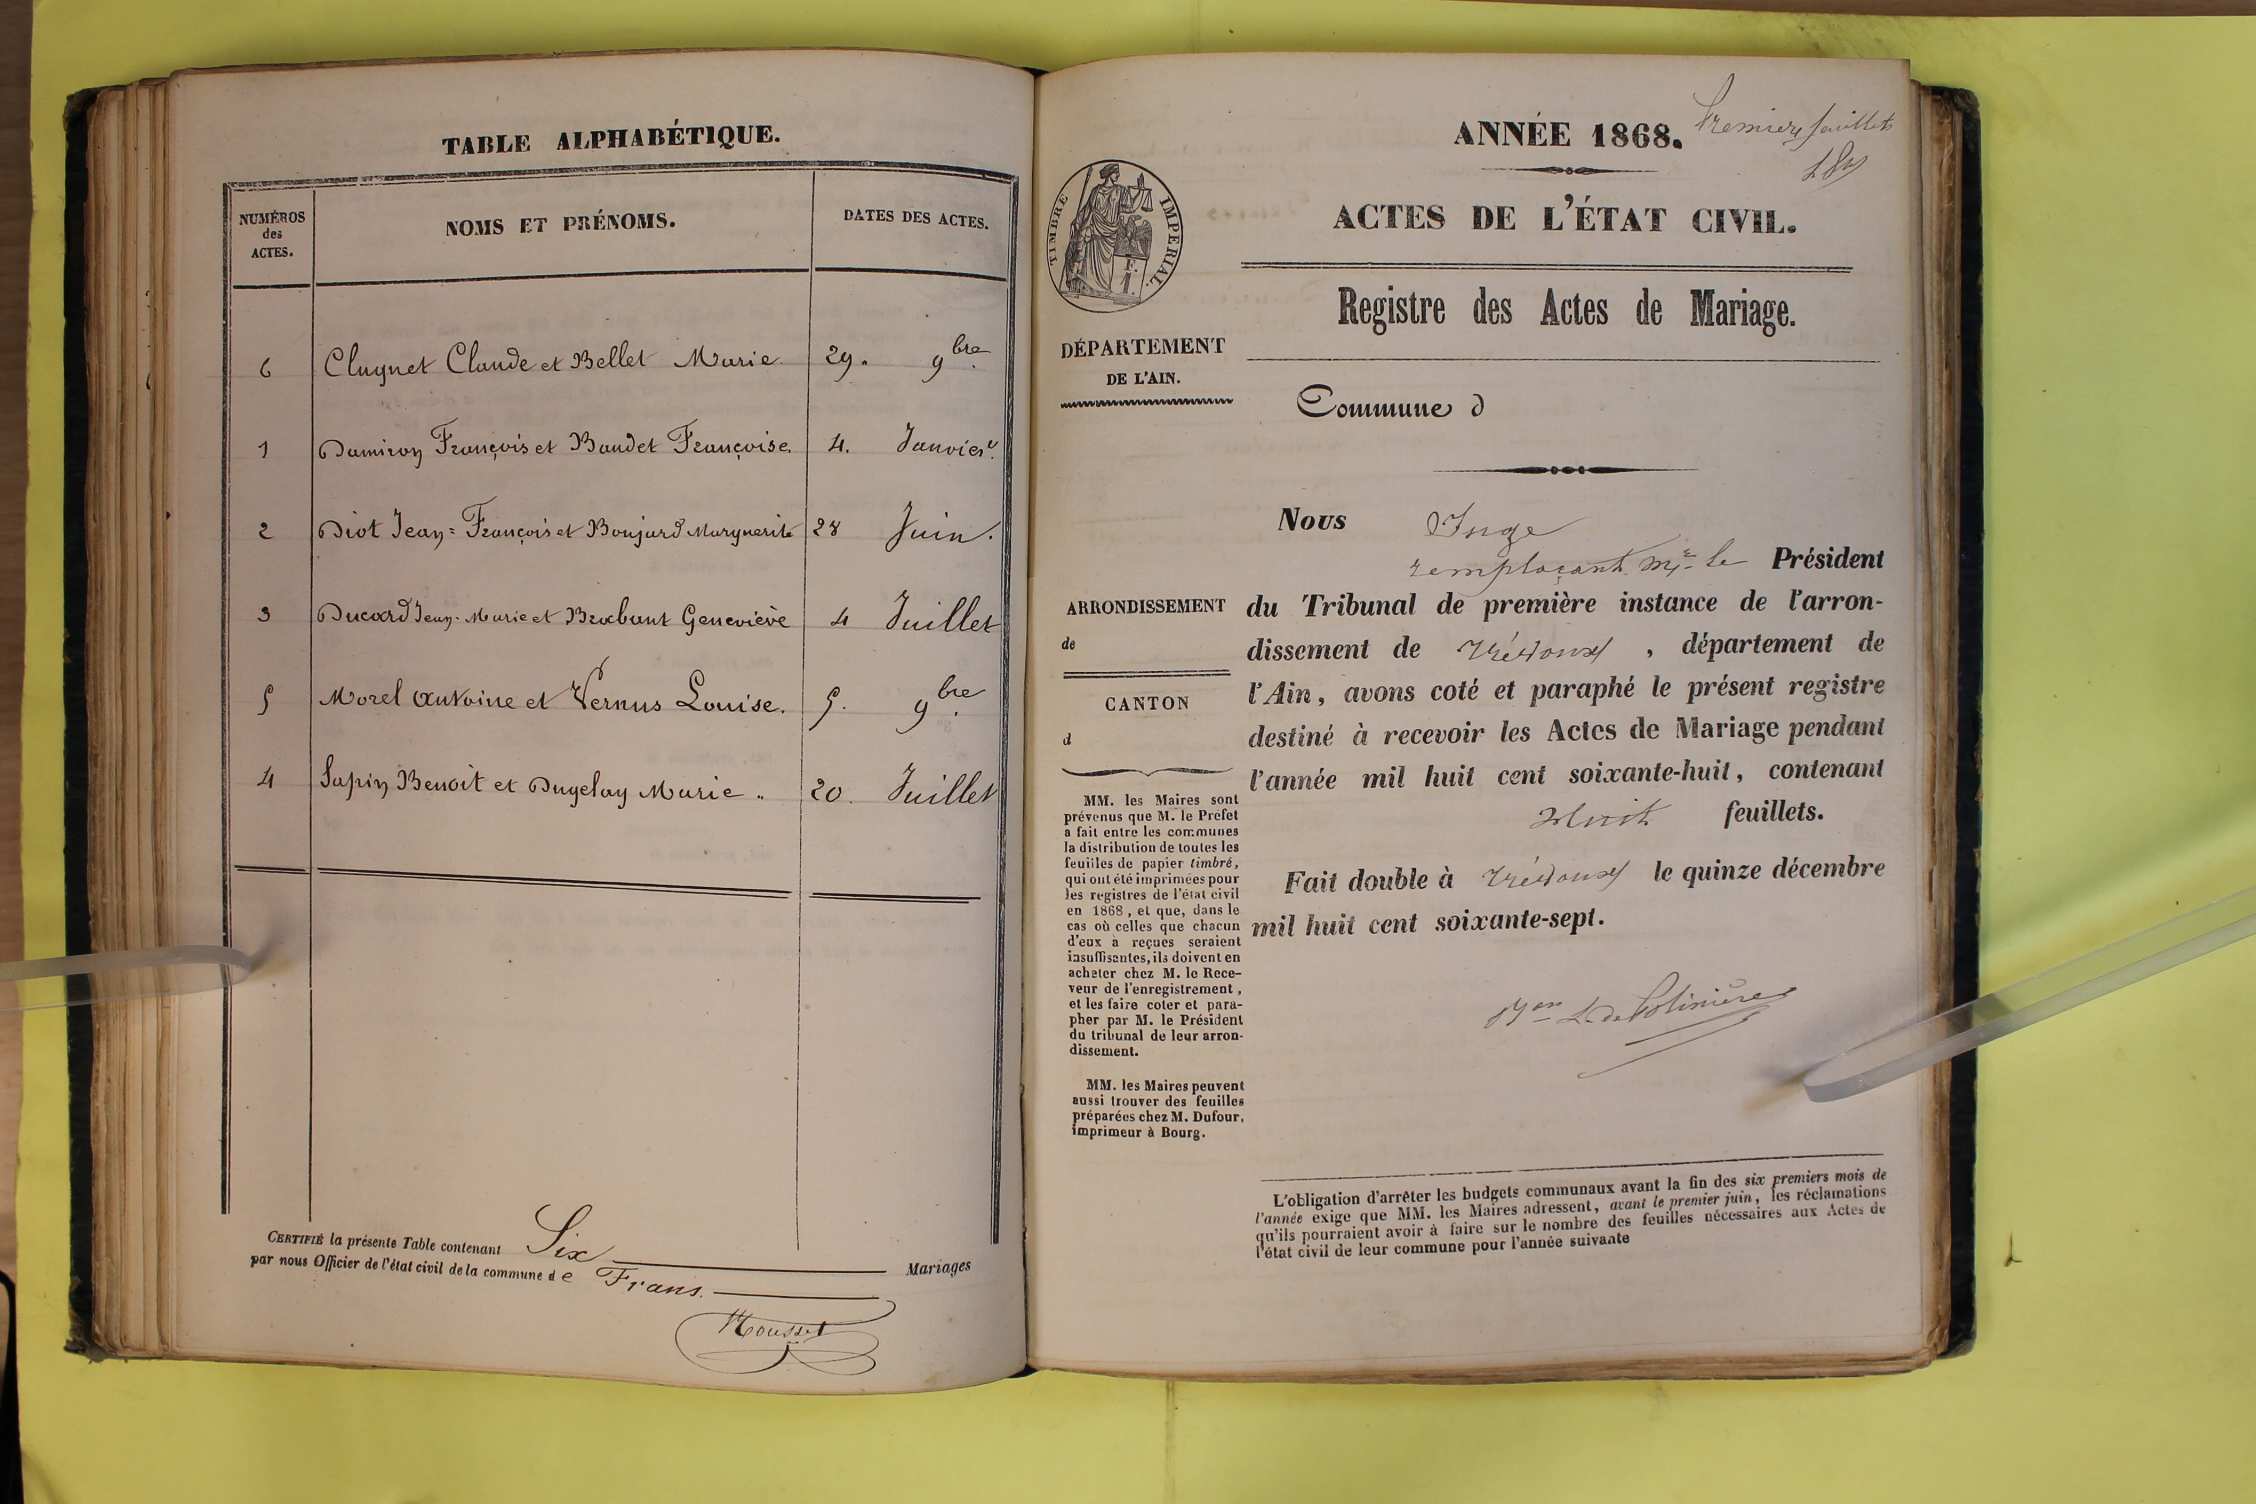 TABLE ALPHABÉTIQUE.
NUMÉROS
des
ACTES.
NOMS ET PRÉNOMS.
DATES DES ACTES.
6 Cluynet Claude et Bellet Marie 29. 9bre.
1 Damiron François et Baudet Françoise. 4. Janvier.
2 Diot Jean=François et Boujard Marguerite 28 Juin.
3 Ducard Jean-Marie et Brabant Geneviève 4 Juillet
5 Morel Antoine et Vernus Louise. 5. 9bre.
4 Sapin Benoit et Dugelay Marie 20. Juillet
CERTIFIÉ la présente Table contenant Six Mariages
par nous Officier de l'état civil de la commune de Frans.
Mousset
ANNÉE 1868.
Premier feuillet
ACTES DE L'ÉTAT CIVIL.
TIMBRE IMPÉRIAL.
F.
1.
Registre des Actes de Mariage.
DÉPARTEMENT
DE L'AIN.
Commune d
ARRONDISSEMENT
de
CANTON
d
MM. les Maires sont
prévenus que M. le Préfet
a fait entre les communes
la distribution de toutes les
feuilles de papier timbré,
qui ont été imprimées pour
les registres de l'état civil
en 1868, et que, dans le
cas où celles que chacun
d'eux a reçues seraient
insuffisantes, ils doivent en
acheter chez M. le Rece-
veur de l'enregistrement,
et les faire coter et para-
pher par M. le Président
du tribunal de leur arron-
dissement.
MM. les Maires peuvent
aussi trouver des feuilles
préparées chez M. Dufour,
imprimeur à Bourg.
Nous Juge
remplaçant Mr le Président
du Tribunal de première instance de l'arron-
dissement de Trévoux, département de
l'Ain, avons coté et paraphé le présent registre
destiné à recevoir les Actes de Mariage pendant
l'année mil huit cent soixante-huit, contenant
huit feuillets.
Fait double à Trévoux le quinze décembre
mil huit cent soixante-sept.
L'obligation d'arrêter les budgets communaux avant la fin des six premiers mois de
l'année exige que MM. les Maires adressent, avant le premier juin, les réclamations
qu'ils pourraient avoir à faire sur le nombre des feuilles nécessaires aux Actes de
l'état civil de leur commune pour l'année suivante